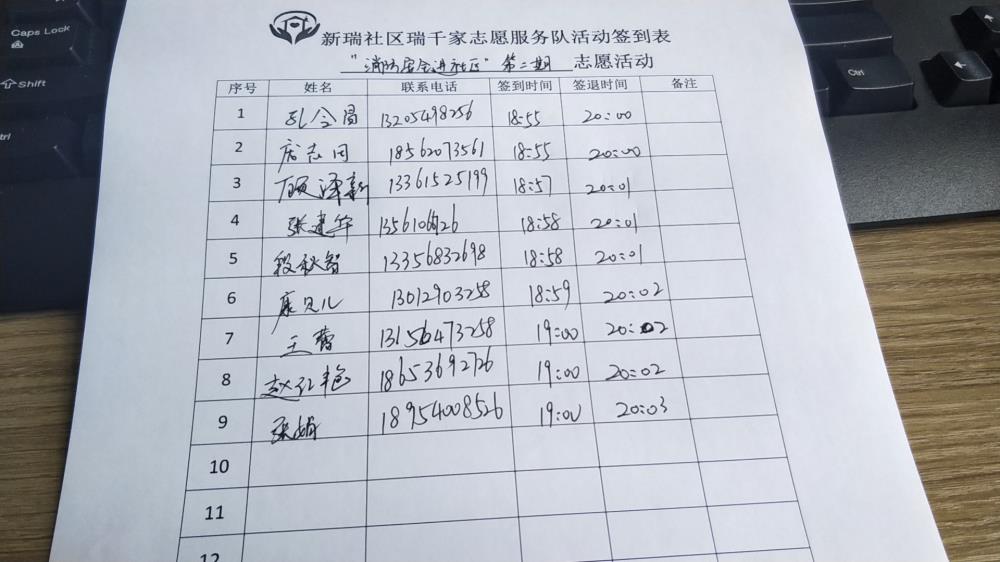 Caps Lock
Shift
Ctrl
新瑞社区瑞千家志愿服务队活动签到表
"消防安全进社区"第二期 志愿活动
序号 姓名 联系电话 签到时间 签退时间 备注
1 孔令国 13205498256 18:55 20:00
2 志同 18562073561 18:55 20:00
3 顾泽新 13361525199 18:57 20:01
4 张建华 18:58 20:01
5 段秋智 13356832698 18:58 20:01
6 康见儿 13012903258 18:59 20:02
7 王蕾 13156473258 19:00 20:02
8 赵红艳 18653692726 19:00 20:02
9 张娟 18954008526 19:00 20:03
10
11
12